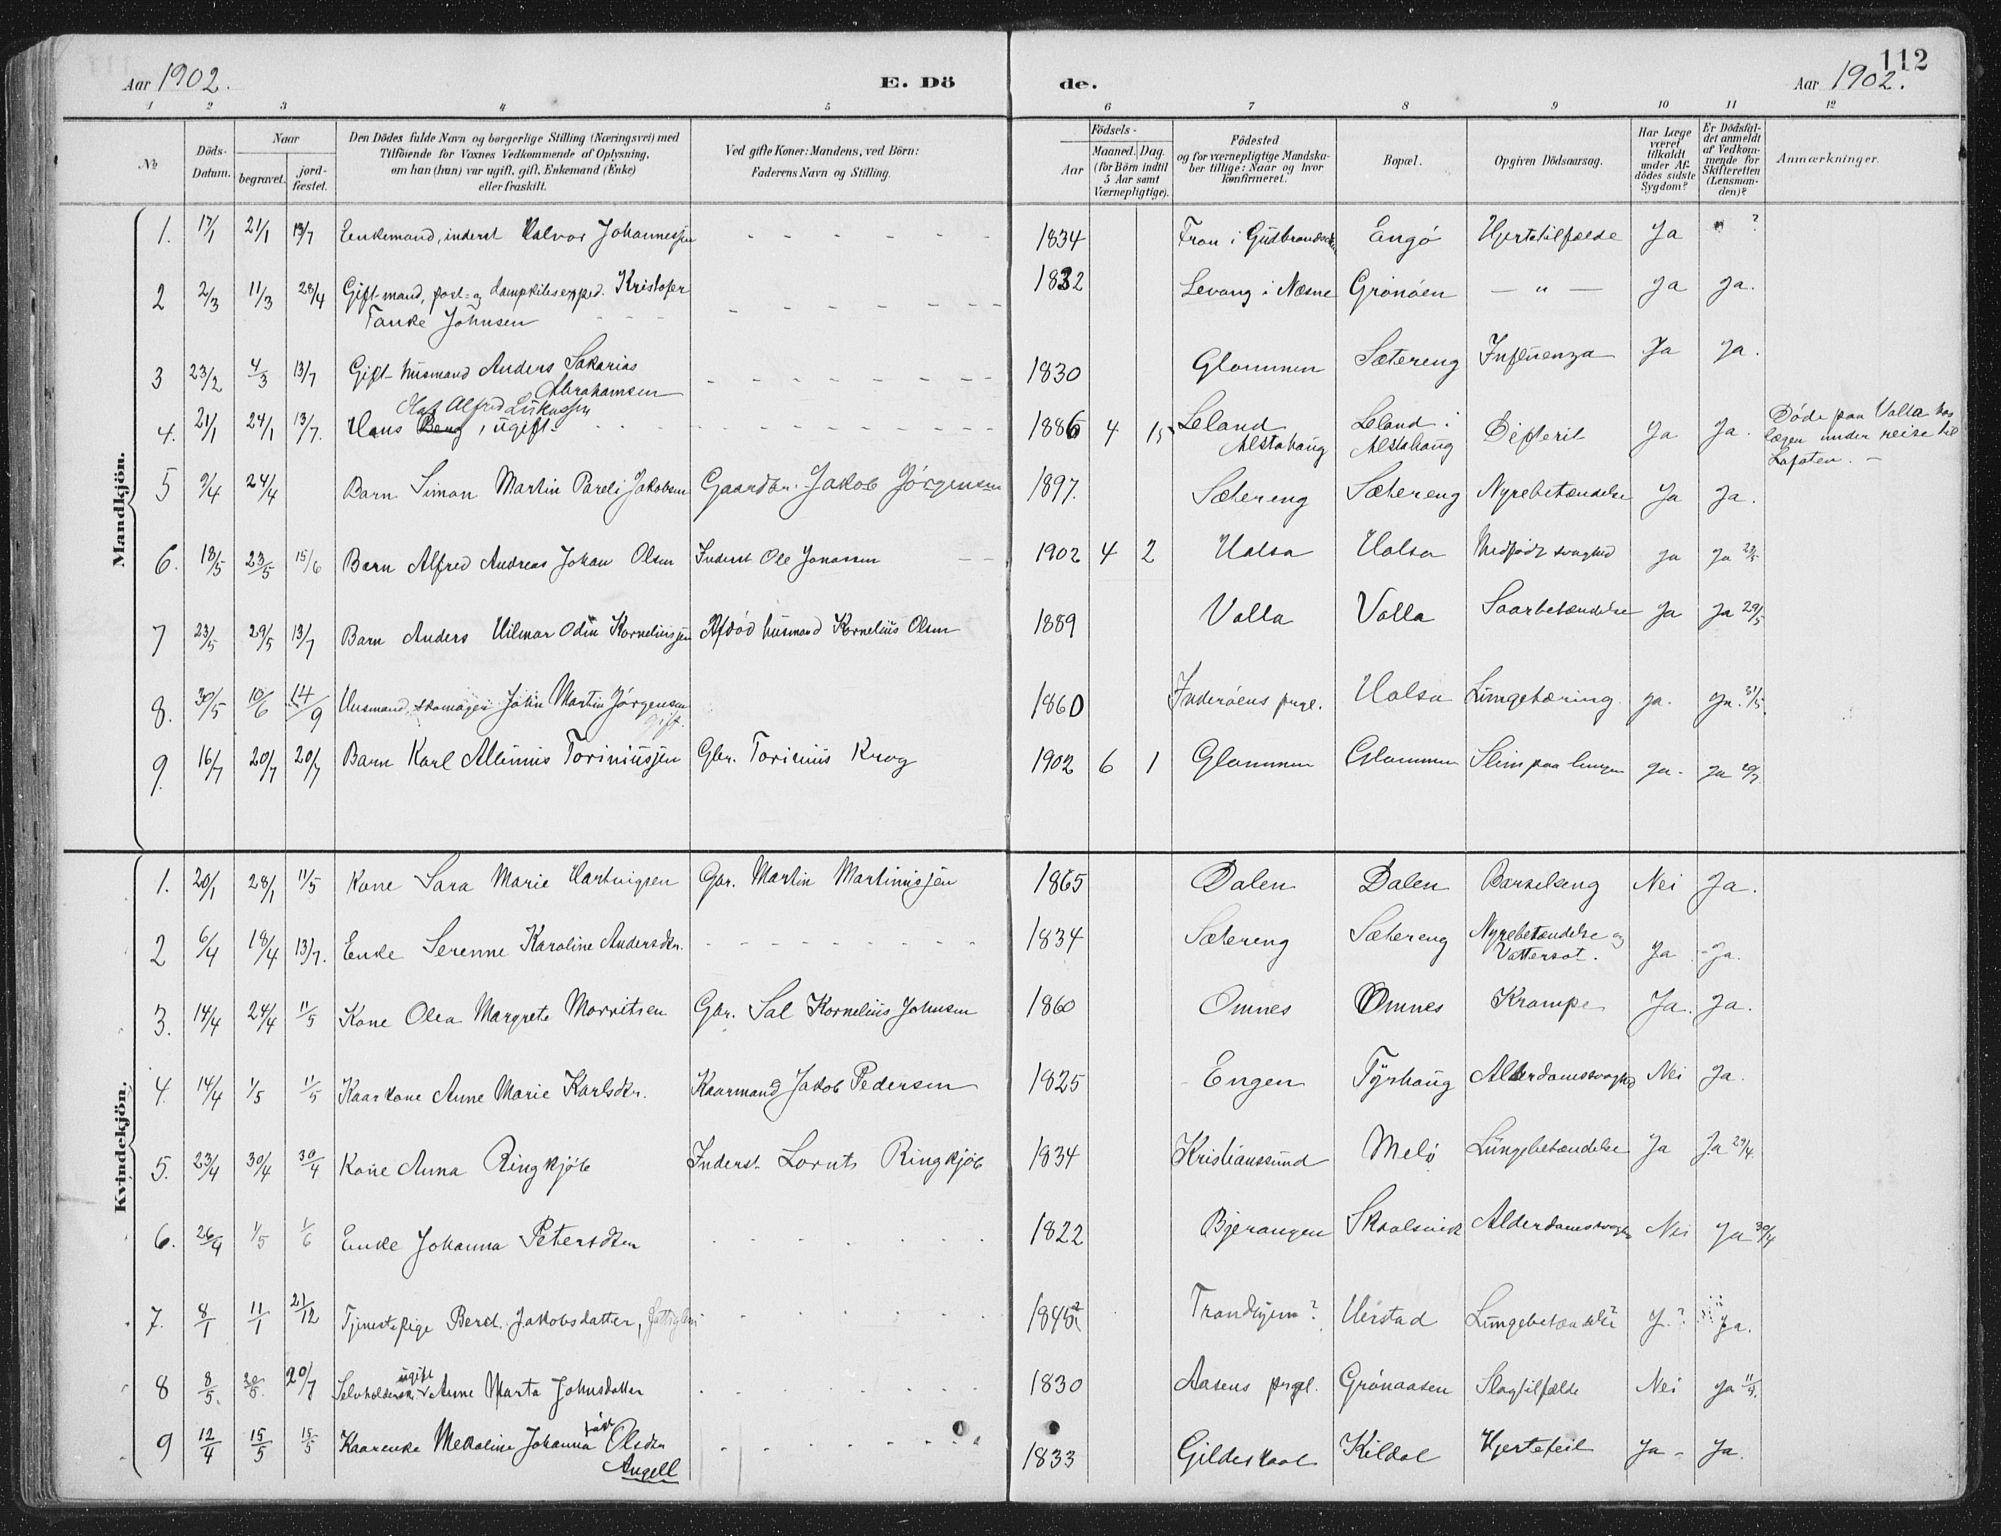 112
Aar 1902. E. Dö de. Aar 1902.
1 2 3 4 5 6 7 8 9 10 11 12
No
Döds-
Datum.
Naar
begravet. jord-
fæstet.
Den Dödes fulde Navn og borgerlige Stilling (Næringsvei) med
Tilföiende for Voxnes Vedkommende af Oplysning,
om han (hun) var ugift, gift, Enkemand (Enke)
eller fraskilt.
Ved gifte Koner: Mandens, ved Börn:
Faderens Navn og Stilling.
Födsels-
Aar
Maaned. Dag.
(for Börn indtil
5 Aar samt
Værnepligtige).
Födested
og for værnepligtige Mandska-
ber tillige: Naar og hvor
konfirmeret.
Bopæl.
Opgiven Dödsaarsag.
Har Læge
været
tilkaldt
under Af-
dödes sidste
Sygdom?
Er Dödsfal-
det anmeldt
af Vedkom-
mende for
Skifteretten
(Lensman-
den)?
Anmærkninger.
Mandkjön.
1. 17/1 21/1 13/7 Enkemand, inderst Halvor Johannessen 1834 Fron i Gudbrandsdalen Engö Hjertetilfælde Ja ?
2 2/3 11/3 28/4 Gift mand, post- og dampskibsexped. Kristofer 1832 Levang i Næsne Grönöen — " — Ja Ja.
Tanke Johnsen
3 23/2 4/3 13/7 Gift husmand Anders Sakarias 1830 Glommen Sætereng Influenza Ja Ja.
Abrahamsen
Olaf Alfred Lukassen
4. 21/1 24/1 13/7. Hans Berg, ugift. 1886 4 15 Leland Alstahaug Leland i Alstahaug Difterit Ja Ja. Döde paa Valla hos
lægen under reise til
Lofoten. —
5 9/4 24/4 Barn Simon Martin Pareli Jakobsen Gaardbr. Jakob Jørgensen 1897. Sætereng Sætereng Nyrebetændelse Ja Ja.
6. 18/5 23/5 15/6 Barn Alfred Andreas Johan Olsen Inderst Ole Jonassen 1902 4 2 Halsa Halsa Medfødt svaghed Ja Ja 23/5
7 23/5 29/5 13/7 Barn Anders Hilmar Odin Kornelius​sen Afdød husmand Kornelius Olsen 1889 Valla Valla Saarbetændelse Ja Ja 29/5
8. 30/5 10/6 14/9 Husmand, skomager John Martin Jørgensen 1860 Inderöens prgl. Halsa Lungetæring. ja. Ja. 31/5.
gift.
9. 16/7 20/7 20/7 Barn Karl Albinus Toriniussen Gbr. Torinius Krog 1902 6 1 Glommen Glommen Slim paa lungen ja. Ja 20/7.
Kvindekjön.
1. 20/1 28/1 11/5 Kone Sara Marie Hartvigsen Gbr. Martin Martinussen 1865 Dalen Dalen Barselseng Nei Ja.
2 6/4 18/4 13/7. Enke Serenne Karoline Andersdtr. 1834 Sætereng Sætereng Nyrebetændelse og
Vattersot. Ja Ja.
3. 14/4 24/4 11/5 Kone Olea Margrete Morritsen Gbr. Sal Kornelius Johnsen 1860 Omnes Omnes Krampe Ja. Ja.
4. 14/4 1/5 11/5 Kaarkone Anne Marie Karlsdtr. Kaarmand Jakob Pedersen 1825 Engen Tyrhaug Alderdomssvaghed Nei Ja.
5. 23/4 30/4 30/4 Kone Anna Ringkjöb Inderst Lornts Ringkjöb 1834 Kristianssund Melö Lungebetændelse Ja Ja 29/4.
6. 26/4 1/5 1/6 Enke Johanna Petersdtr 1822 Bjerangen Skaalsvik Alderdomssvaghed Nei Ja 30/4
7. 8/1 11/1 21/12 Tjenestepige Beret Jakobsdatter, 1845 Trondhjem? Herstad Lungebetændelse? J.? Ja.
8 8/5. 20/5. 20/7 ugift Anne Marta Johnsdatter 1830 Aasens prgl. Grönaasen Slagtilfælde Nei Ja 11/5.
9 12/4 15/5 15/5 Kaarenke Mekaline Johanna född Olsdtr 1833 Gildeskaal Kildal Hjertefeil Ja - Ja.
Angell